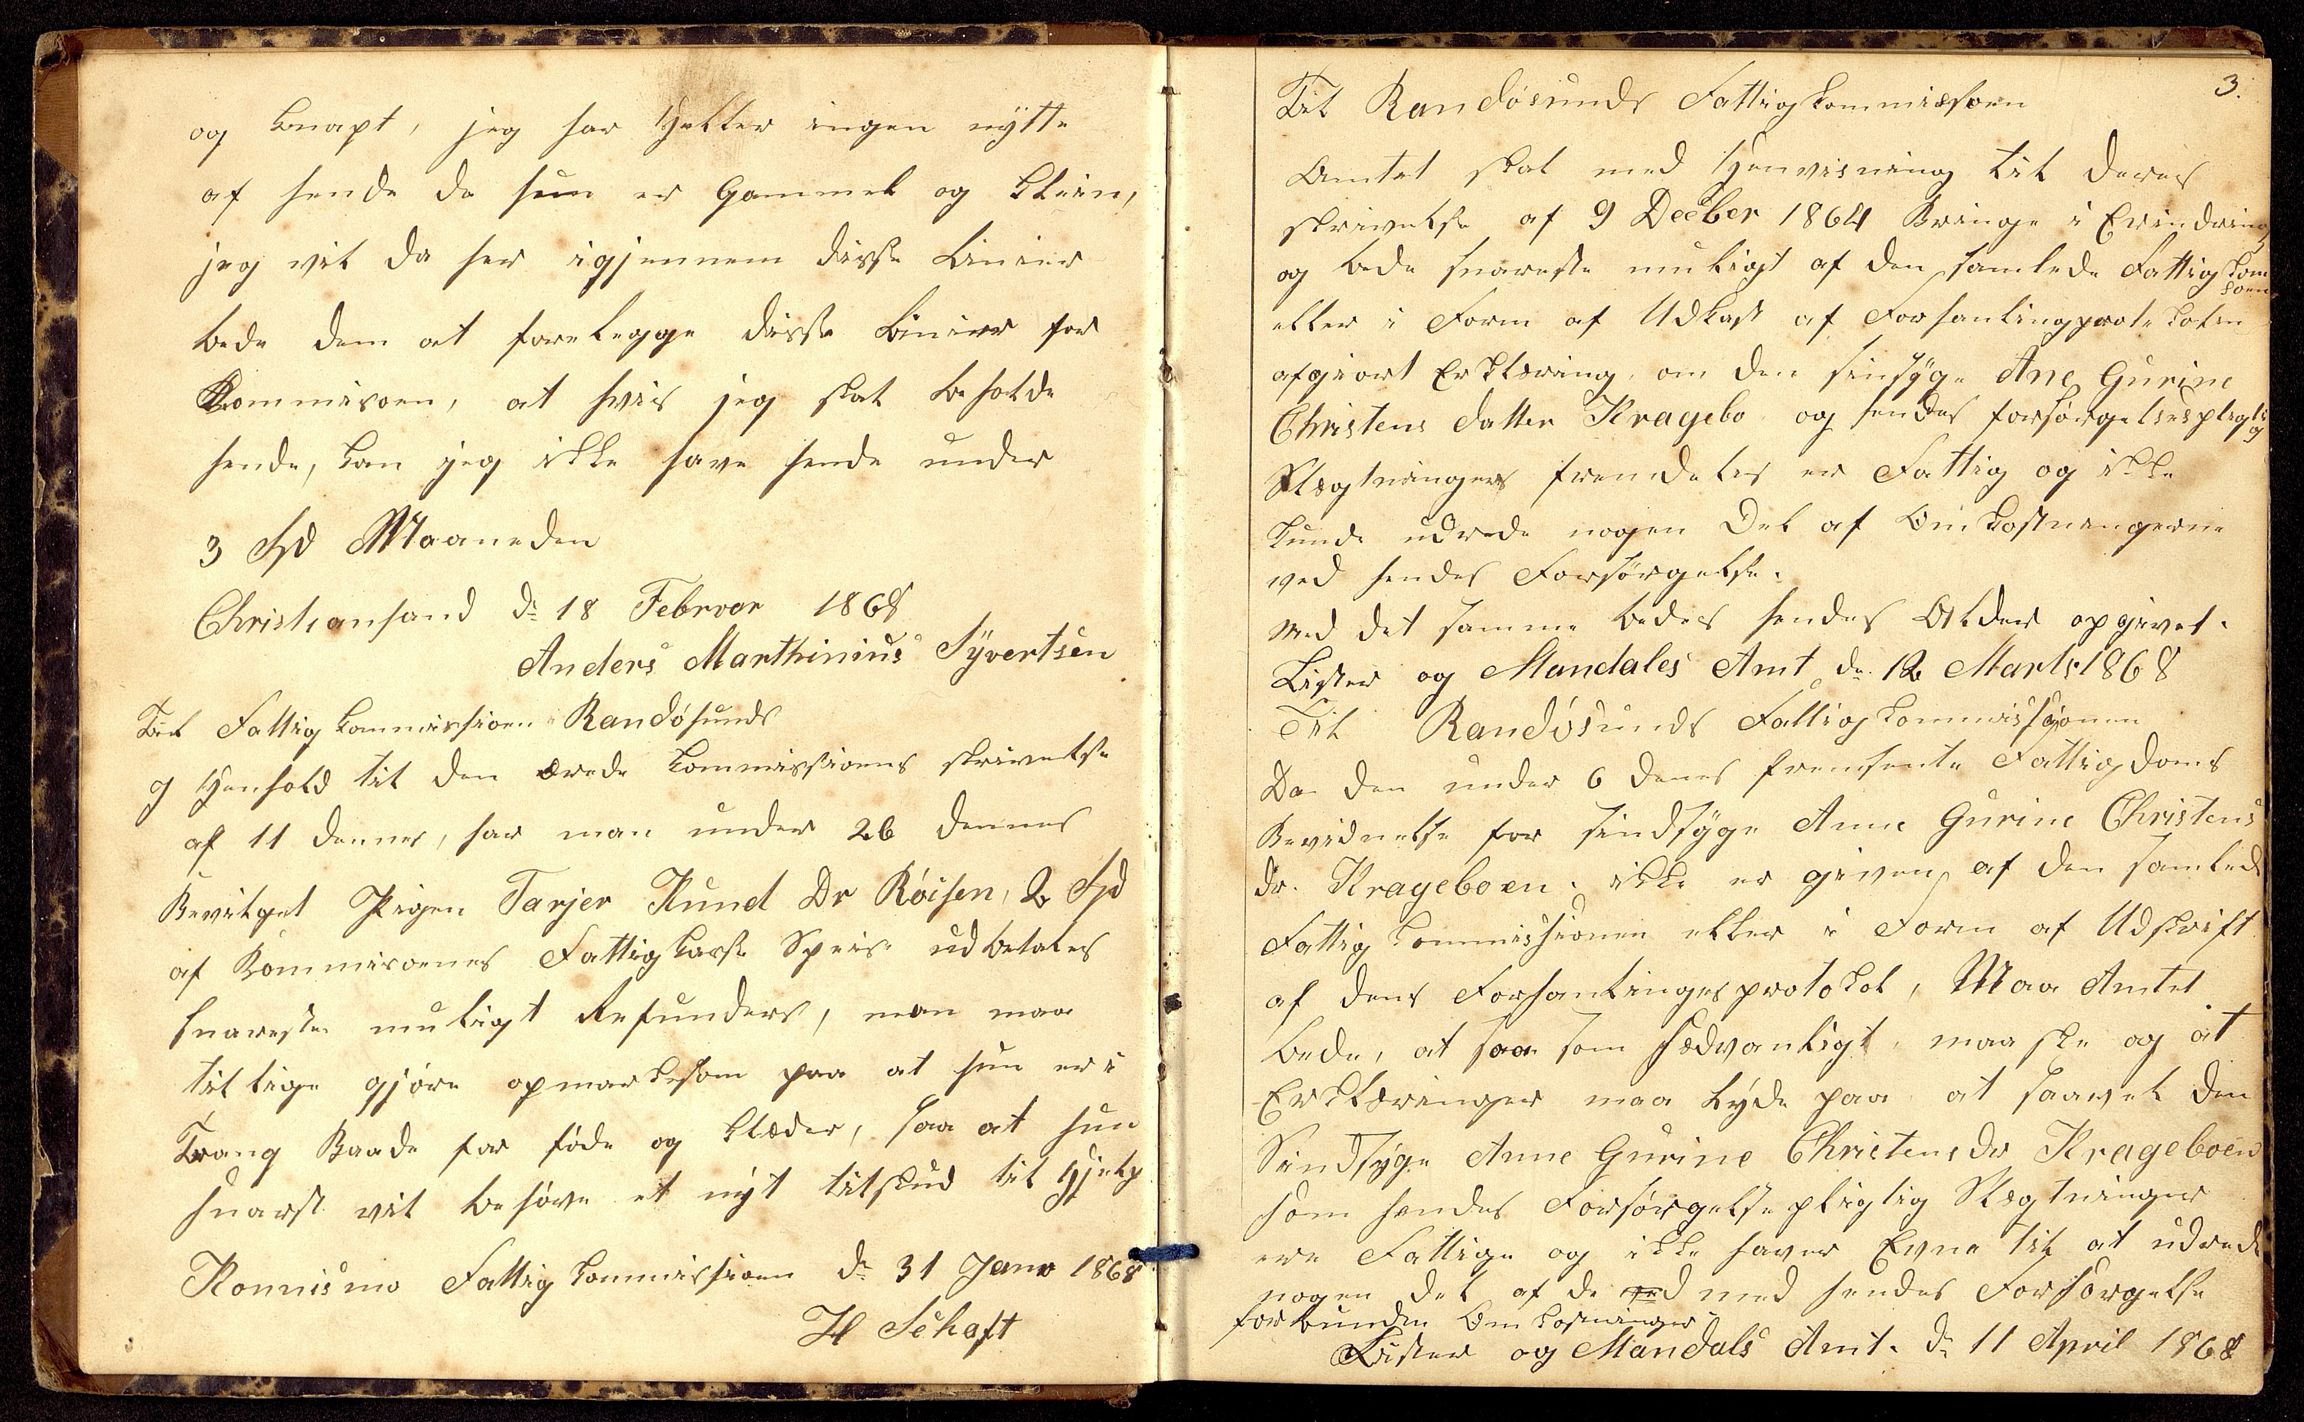 og knapt, jeg har heller ingen nytte
af hende da hun er Gammel og klein,
jeg vil da her igjennem disse Linier
bede dem at forelegge disse Linier for
Kommisoen, at hvis jeg skal beholde
hende, kan jeg ikke have hende under
3 Spd Maaneden
Christiansand d: 18 Februar 1868
Anders Marthinius Syvertsen
Til Fattigkommissioen Randøsunds
I Henhold til den ærede Kommissioens skrivelse
af 11 dennes, har man under 26 dennes
Bevilget Pigen Tarjer Knud Dr Røisen, 2 Spd
af Kommisoenes Fattigkasse Speis udbetales
snareste muligt Refunders, man maa
tillige gjøre opmarksom paa at hun er i
Trang Baade for føde og klæder, saa at hun
snarst vil behøve et nyt tilskud til Hjelp
Fattigkommissioen d: 31 Janr 1868
H Schaft
3.
Til Randøsunds Fattigkommissoen
Amtet skal med Henvisning til deres
skrivelse af 9 Decber 1864 Bringe i Erindring
og bede snareste muligt af den samlede Fattigkom
soen
eller i Form af Udkast af Forhanlingprotekolen
afgivort Erklæring om den sinsyge Ane Gurine
Christens datter Kragebo og hendes forsørgelsespligtig
Slægtninger fremdeles er Fattig og ikke
kunde udrede nogen Del af Omkostningerne
ved hendes Forsørgelse.
Med det samme bedes hendes Alder opgivet.
Lister og Mandales Amt d: 12 Marts 1868
Til Randøsunds Fattigkommissionen
Da den under 6 denes fremsente Fattigdoms
Bevidnelse for sindsyge Anne Gurine Christens
dr. Krageboen. ikke er given af den samlede
Fattigkommissionen eller i Form af Udskrift
af dens Forhanlingesprotokol, Maa Amtet
bede, at saa som sædvanligt, maa ske og at
Erklæringer maa lyde paa at saavel den
Sindsyge Anne Gurine Christensdr Krageboen
som hendes Forsørgelsepligtig Slægtninger
ere Fattige og ikke haver Evne til at udrede
nogen del af de ved med hendes Forsørgelse
forbundne Omkostninger
Lister og Mandals Amt. d: 11 April 1868